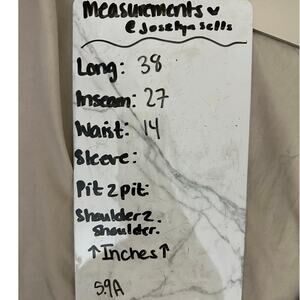 Measurements
@Joselynsells
Long: 38
Inseam: 27
Waist: 14
Sleeve:
Pit 2 pit:
Shoulder 2.
Shoulder.
↑Inches↑